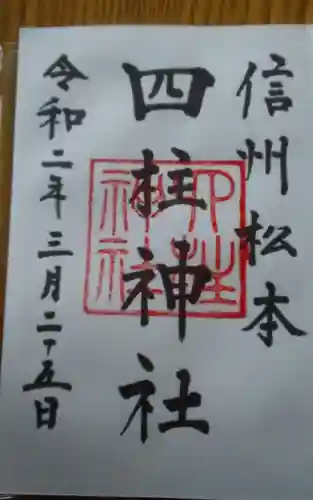 信州松本
四柱神社
四柱
神社
令和二年三月二十五日